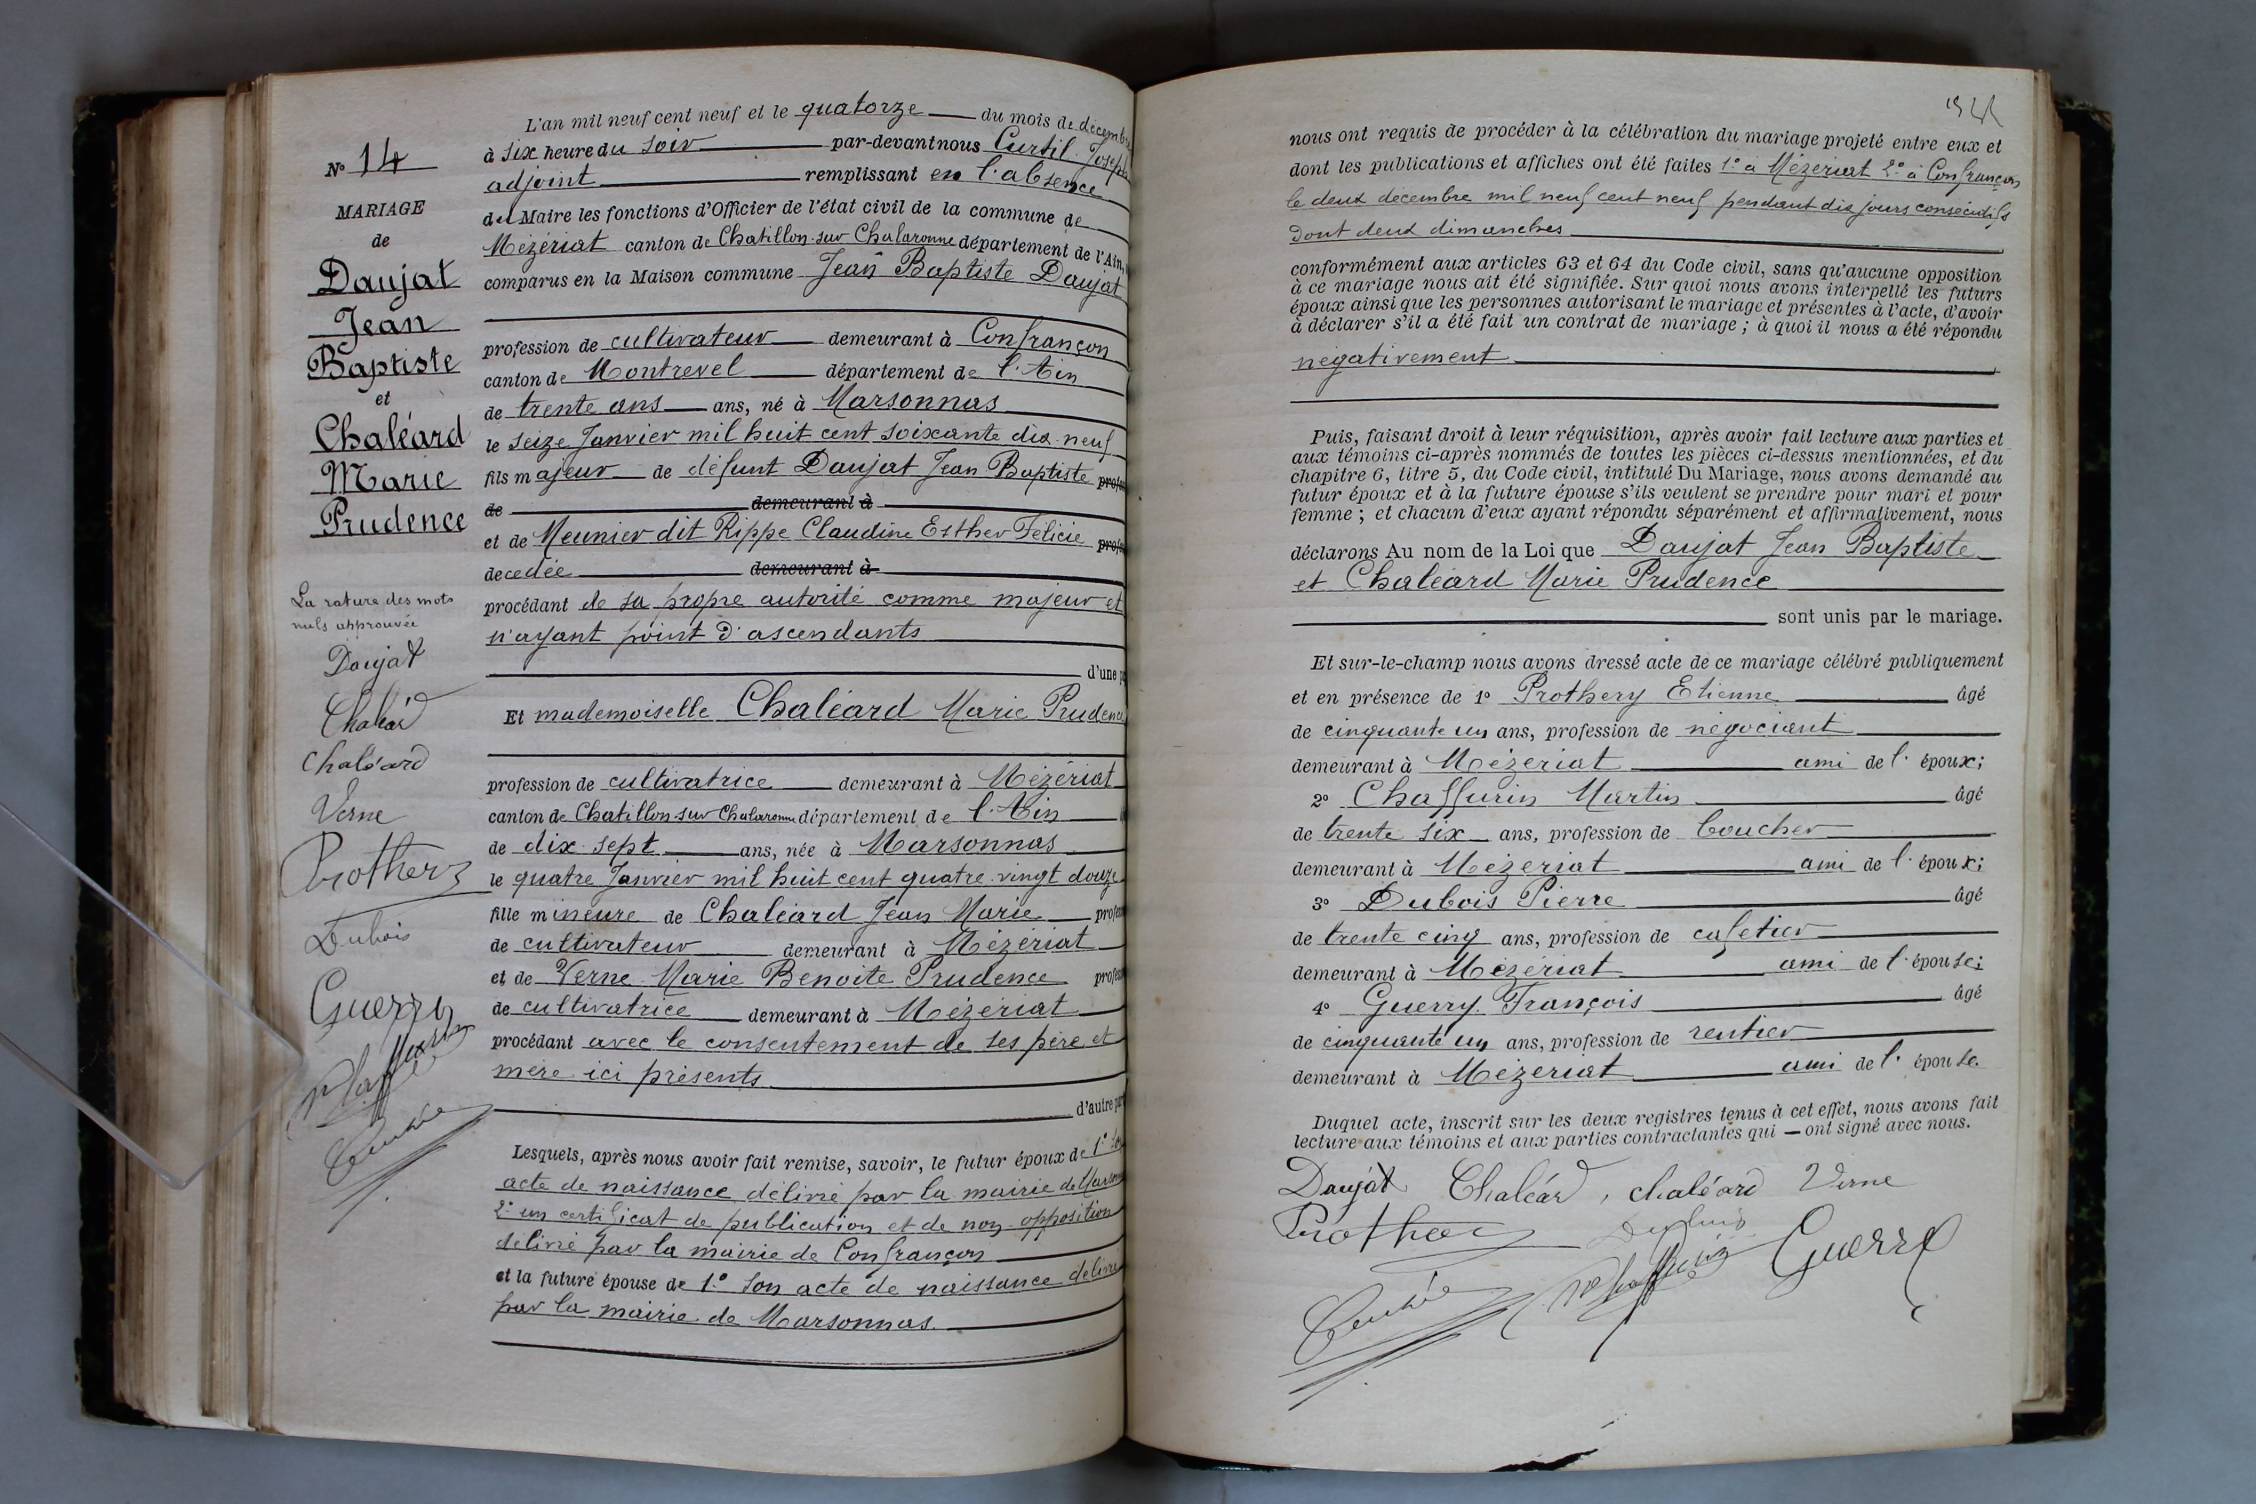 N° 14
MARIAGE
de
Daujat
Jean
Baptiste
et
Chaléard
Marie
Prudence
La rature des mots
nuls approuvée
Daujat
Chaléard
Chaléard
Verne
Prothery
Dubois
Guerry
L'an mil neuf cent neuf et le quatorze du mois de décembre
à six heure du soir par-devant nous Curtil Joseph
adjoint remplissant en l'absence
du Maire les fonctions d'Officier de l'état civil de la commune de
Mézériat canton de Chatillon-sur Chalaronne département de l'Ain,
comparus en la Maison commune Jean Baptiste Daujat
profession de cultivateur demeurant à Confrançon
canton de Montrevel département de l'Ain
de trente ans ans, né à Marsonnas
le seize Janvier mil huit cent soixante dix-neuf
fils majeur de défunt Daujat Jean Baptiste
de demeurant à
et de Meunier dit Rippe Claudine Esther Félicie
decedée demeurant à
procédant de sa propre autorité comme majeur et
n'ayant point d'ascendants
d'une
Et mademoiselle Chaléard Marie Prudence
profession de cultivatrice demeurant à Mézériat
canton de Chatillon-sur Chalaronne département de l'Ain
de dix sept ans, née à Marsonnas
le quatre Janvier mil huit cent quatre-vingt douze
fille mineure de Chaléard Jean Marie
de cultivateur demeurant à Mézériat
et de Verne Marie Benoite Prudence
de cultivatrice demeurant à Mézériat
procédant avec le consentement de ses père et
mère ici présents
d'autre part
Lesquels, après nous avoir fait remise, savoir, le futur époux de 1° son
acte de naissance délivré par la mairie de Marsonnas
2° un certificat de publication et de non-opposition
délivré par la mairie de Confrançon
et la future épouse de 1° son acte de naissance délivré
par la mairie de Marsonnas.
nous ont requis de procéder à la célébration du mariage projeté entre eux et
dont les publications et affiches ont été faites 1° à Mézériat 2° à Confrançon
le deux décembre mil neuf cent neuf pendant dix jours consécutifs
dont deux dimanches
conformément aux articles 63 et 64 du Code civil, sans qu'aucune opposition
à ce mariage nous ait été signifiée. Sur quoi nous avons interpellé les futurs
époux ainsi que les personnes autorisant le mariage et présentes à l'acte, d'avoir
à déclarer s'il a été fait un contrat de mariage ; à quoi il nous a été répondu
négativement
Puis, faisant droit à leur réquisition, après avoir fait lecture aux parties et
aux témoins ci-après nommés de toutes les pièces ci-dessus mentionnées, et du
chapitre 6, titre 5, du Code civil, intitulé Du Mariage, nous avons demandé au
futur époux et à la future épouse s'ils veulent se prendre pour mari et pour
femme ; et chacun d'eux ayant répondu séparément et affirmativement, nous
déclarons Au nom de la Loi que Daujat Jean Baptiste
et Chaléard Marie Prudence
sont unis par le mariage.
Et sur-le-champ nous avons dressé acte de ce mariage célébré publiquement
et en présence de 1° Prothery Etienne âgé
de cinquante un ans, profession de négociant
demeurant à Mézériat ami de l' époux;
2° Chaffurin Martin âgé
de trente six ans, profession de boucher
demeurant à Mézériat ami de l' époux;
3° Dubois Pierre âgé
de trente cinq ans, profession de cafetier
demeurant à Mézériat ami de l' épouse;
4° Guerry François âgé
de cinquante un ans, profession de rentier
demeurant à Mézériat ami de l' épouse.
Duquel acte, inscrit sur les deux registres tenus à cet effet, nous avons fait
lecture aux témoins et aux parties contractantes qui ont signé avec nous.
Daujat Chaléard chaléard Verne
Prothery Dubois Guerry